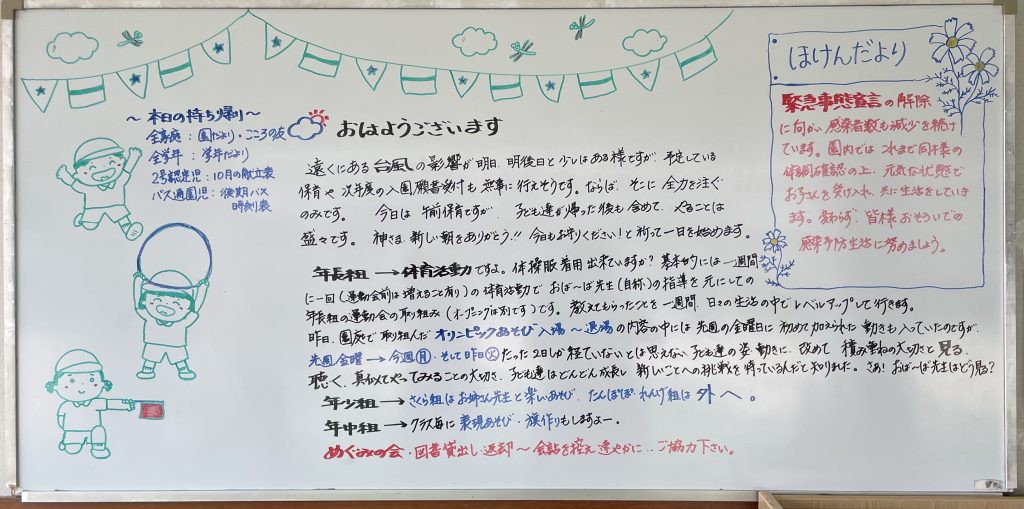 ～本日の持ち帰り～
全家庭：園だより・こころの友
全学年：学年だより
2号認定児：10月の献立表
バス通園児：後期バス
時刻表
おはようございます
遠くにある台風の影響が明日、明後日と少しはある様ですが、予定している
保育や次年度の入園願書受付も無事に行えそうです。ならば、そこに全力を注ぐ
のみです。 今日は午前保育ですが、子ども達が帰った後も含めて、やることは
盛々です。神さま、新しい朝をありがとう!! 今日もお守りください！と祈って一日を始めます。
年長組→体育活動ですよ。体操服着用出来ていますか？基本的には一週間
に一回(運動会前は増えること有り)の体育活動で おば～ば先生(自称)の指導を元にしての
年長組の運動会の取り組み(オープニングは別です)です。教えてもらったことを一週間、日々の生活の中でレベルアップして行きます。
昨日、園庭で取り組んだオリンピックあそび入場～退場の内容の中には先週の金曜日に初めて加えられた動きも入っていたのですが、
先週金曜→今週㊊、そして昨日㊋たった2日しか経ていないとは思えない子ども達の姿・動きに、改めて 積み重ねの大切さと見る、
聴く、真似てやってみることの大切さ、子ども達はどんどん成長し 新しいことへの挑戦を待っているんだと知りました。さあ！おば～ば先生はどう見る？
年少組→さくら組はお姉さん先生と楽しいあそび、たんぽぽ・れんげ組は外へ。
年中組→クラス毎に表現あそび・旗作りもしますよー。
めぐみの会・図書貸出し返却～会話を控え速やかに…ご協力下さい。
ほけんだより
緊急事態宣言の解除
に向かい感染者数も減少を続け
ています。園内ではこれまで同様の
体調確認の上、元気な状態で
お子さんを受け入れ、共に生活をしていき
ます。変わらず、皆様おそろいでの
感染予防生活に努めましょう。